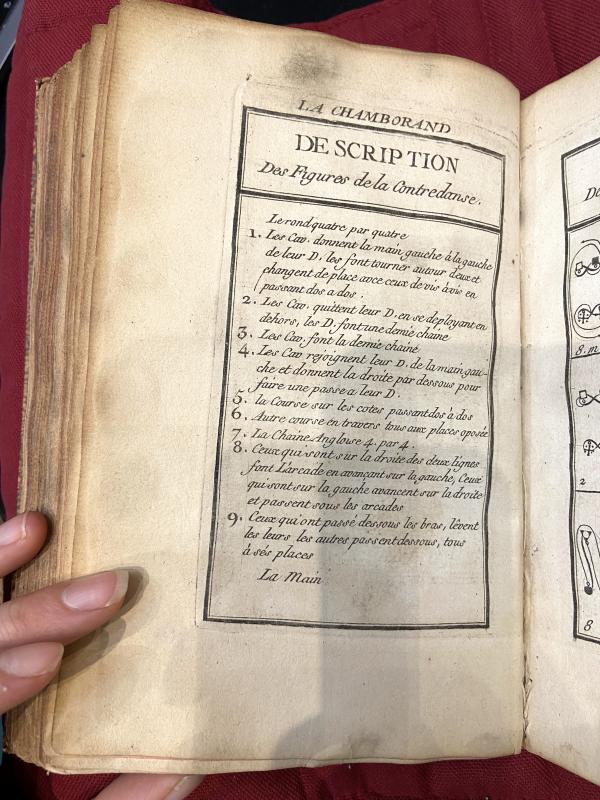 LA CHAMBORAND
DESCRIPTION
Des Figures de la Contredanse.
Le rond quatre par quatre
1. Les Cav. donnent la main gauche à la gauche
de leur D. les font tourner autour d'eux et
changent de place avce ceux de vis à vis en
passant dos a dos.
2. Les Cav. quittent leur D. en se deployant en
dehors, les D. font une demie chaine
3. Les Cav. font la demie chaine
4. Les Cav rejoignent leur D. de la main gau-
che et donnent la droite par dessous pour
faire une passe a leur D.
5. la Course sur les cotes passant dos à dos
6. Autre course en travers tous aux places oposée
7. La Chaine Anglouse 4. par 4.
8. Ceux qui sont sur la droite des deux lignes
font L'arcade en avançant sur la gauche, Ceux
qui sont sur la gauche avancent sur la droite
et passent sous les arcades
9. Ceux qui ont passé dessous les bras, lêvent
les leurs les autres passent dessous, tous
à sés places
La Main
De
8. m
2
8